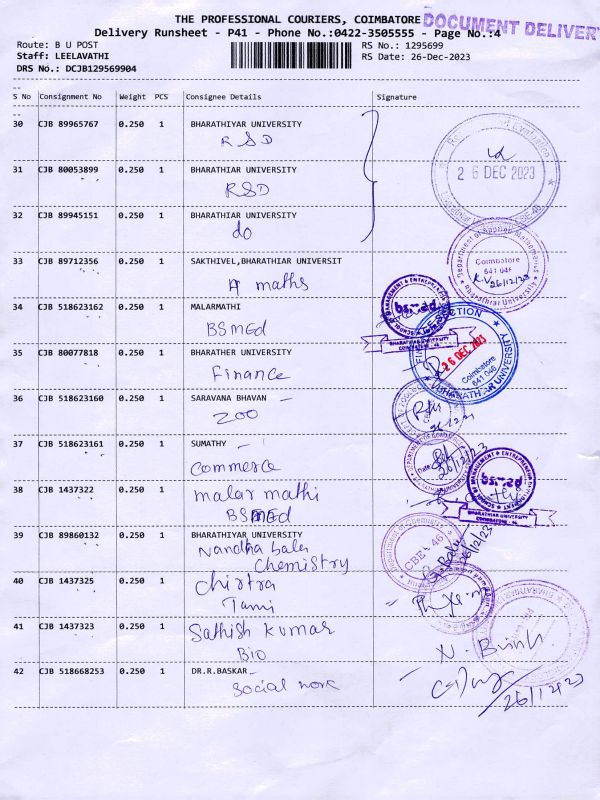 THE PROFESSIONAL COURIERS, COIMBATORE
DOCUMENT DELIVERY
Delivery Runsheet - P41 - Phone No.:0422-3505555 - Page No.:4
Route: B U POST
RS No.: 1295699
Staff: LEELAVATHI
RS Date: 26-Dec-2023
DRS No.: DCJB129569904
S No Consignment No Weight PCS Consignee Details Signature
30 CJB 89965767 0.250 1 BHARATHIYAR UNIVERSITY
RSD
26 DEC 2023
31 CJB 80053899 0.250 1 BHARATHIAR UNIVERSITY
RSD
32 CJB 89945151 0.250 1 BHARATHIAR UNIVERSITY
do
Department of Applied Mathematics
33 CJB 89712356 0.250 1 SAKTHIVEL,BHARATHIAR UNIVERSIT
Coimbatore
641 046
Bharathiar University
A maths
K.V 26/12/23
34 CJB 518623162 1 MALARMATHI
BSMEd
bsmed
BHARATHIAR UNIVERSITY
COIMBATORE - 46
35 CJB 80077818 0.250 1 BHARATHER UNIVERSITY
Finance
26 DEC 2023
Coimbatore
641 046
BHARATHIAR UNIVERSITY
36 CJB 518623160 0.250 1 SARAVANA BHAVAN
ZOO
37 CJB 518623161 0.250 1 SUMATHY
Commerce
26/12/23
38 CJB 1437322 0.250 1 malar mathi
BSMEd
bsmed
BHARATHIAR UNIVERSITY
COIMBATORE - 46
39 CJB 89860132 0.250 1 BHARATHIYAR UNIVERSITY
Nandha bala
Chemistry
Department of Chemistry
CBE - 46
26/12/23
40 CJB 1437325 0.250 1 Chirtra
Tami
41 CJB 1437323 0.250 1 Sathish kumar
BIO
42 CJB 518668253 0.250 1 DR.R.BASKAR
Social work
26/12/23